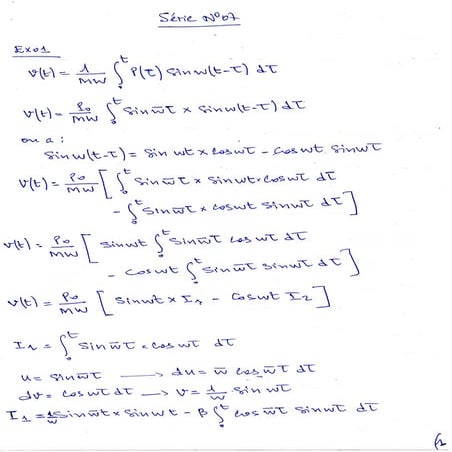 Série N°07
Exo1
v(t) = 1/MW ∫₀ᵗ P(τ) sin w(t-τ) dτ
v(t) = P₀/MW ∫₀ᵗ sin w̄τ × sin w(t-τ) dτ
on a :
sin w(t-τ) = sin wt × cos wτ - cos wt sin wτ
v(t) = P₀/MW [ ∫₀ᵗ sin w̄τ × sin wt × cos wτ dτ
- ∫₀ᵗ sin w̄τ × cos wt sin wτ dτ ]
v(t) = P₀/MW [ sin wt ∫₀ᵗ sin w̄τ cos wτ dτ
- cos wt ∫₀ᵗ sin w̄τ sin wτ dτ ]
v(t) = P₀/MW [ sin wt × I₁ - cos wt I₂ ]
I₁ = ∫₀ᵗ sin w̄τ × cos wτ dτ
u = sin w̄τ → du = w̄ cos w̄τ dτ
dv = cos wτ dτ → v = 1/w sin wτ
I₁ = 1/w sin w̄t × sin wt - β ∫₀ᵗ cos w̄τ sin wτ dτ